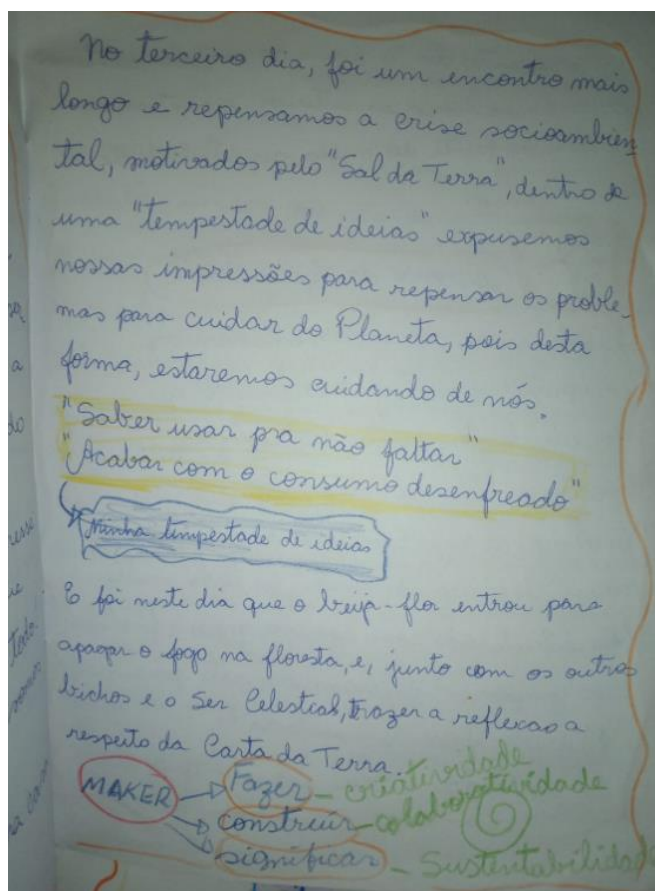 No terceiro dia, foi um encontro mais
longo e repensamos a crise socioambien
tal, motivados pelo "Sal da Terra", dentro de
uma "tempestade de ideias" expusemos
nossas impressões para repensar os proble
mas para cuidar do Planeta, pois desta
forma, estaremos cuidando de nós.
"Saber usar pra não faltar"
"Acabar com o consumo desenfreado"
Minha tempestade de ideias
E foi neste dia que o beija-flor entrou para
apagar o fogo na floresta, e, junto com os outros
bichos e o Ser Celestial, trazer a reflexao a
respeito da Carta da Terra.
MAKER Fazer - criatividade
construir - colaboratividade
significar - Sustentabilidade